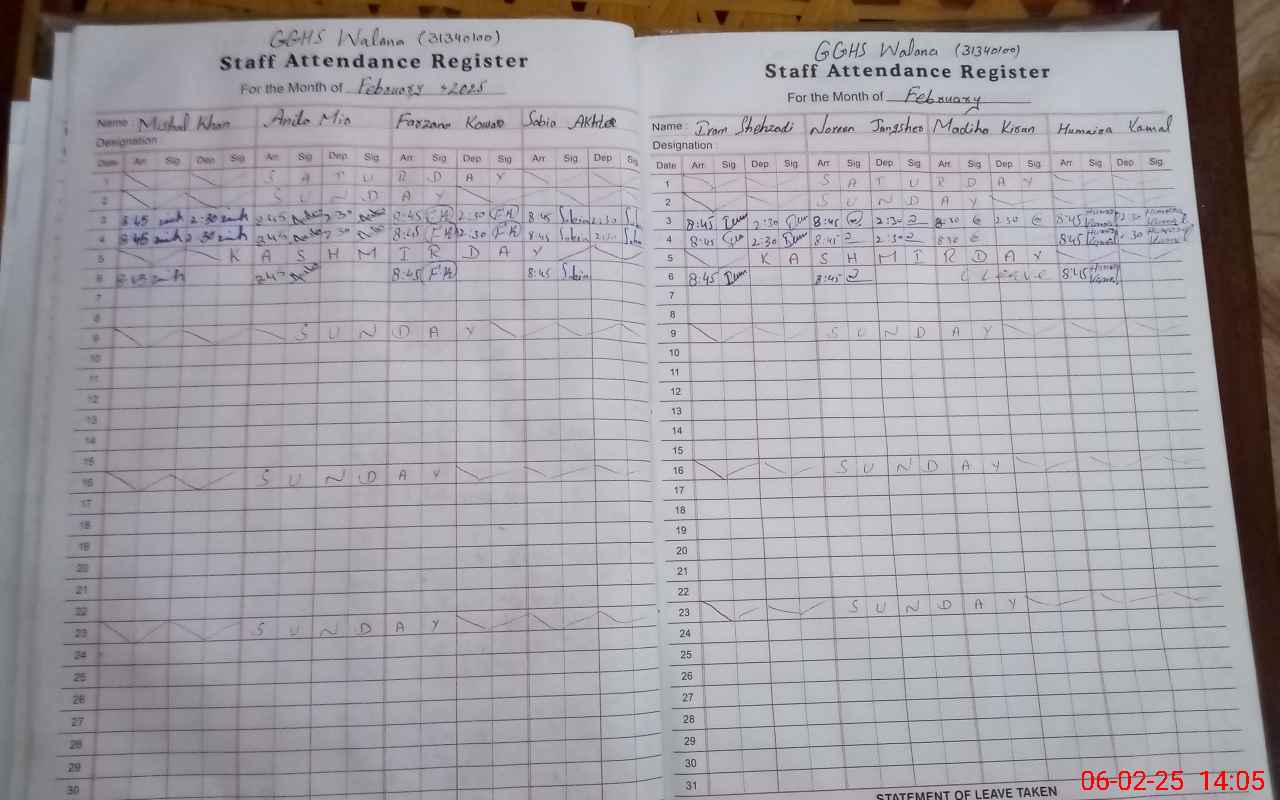 GGHS Walana (31340100)
Staff Attendance Register
For the Month of February 2025
Name : Mishal Khan Anila Mir Farzana Kowsar Sobia Akhter
Designation :
Date Arr Sig Dep Sig Arr Sig Dep Sig Arr Sig Dep Sig Arr Sig Dep Sig
1 S A T U R D A Y
2 S U N D A Y
3 8:45 2:30 2:45 8:45 FK 2:30 FK 8:45 Sobia 2:30
4 8:45 2:30 8:45 FK 2:30 FK 8:45 Sobia 2:30
5 K A S H M I R D A Y
6 8:45 8:45 FK 8:45 Sobia
7
8
9 S U N D A Y
10
11
12
13
14
15
16 S U N D A Y
17
18
19
20
21
22
23 S U N D A Y
24
25
26
27
28
29
30
GGHS Walana (31340100)
Staff Attendance Register
For the Month of February
Name : Iram Shehzadi Noreen Madiha Kiran Humaira Kamal
Designation :
Date Arr Sig Dep Sig Arr Sig Dep Sig Arr Sig Dep Sig Arr Sig Dep Sig
1 S A T U R D A Y
2 S U N D A Y
3 8:45 2:30 8:45 2:30 8:30 2:30 8:45 Humaira Kamal 2:30 Humaira Kamal
4 8:45 2:30 8:45 2:30 8:30 8:45 Humaira Kamal 2:30 Humaira Kamal
5 K A S H M I R D A Y
6 8:45 8:45 C Leave 8:45 Humaira Kamal
7
8
9 S U N D A Y
10
11
12
13
14
15
16 S U N D A Y
17
18
19
20
21
22
23 S U N D A Y
24
25
26
27
28
29
30
31
STATEMENT OF LEAVE TAKEN
06-02-25 14:05